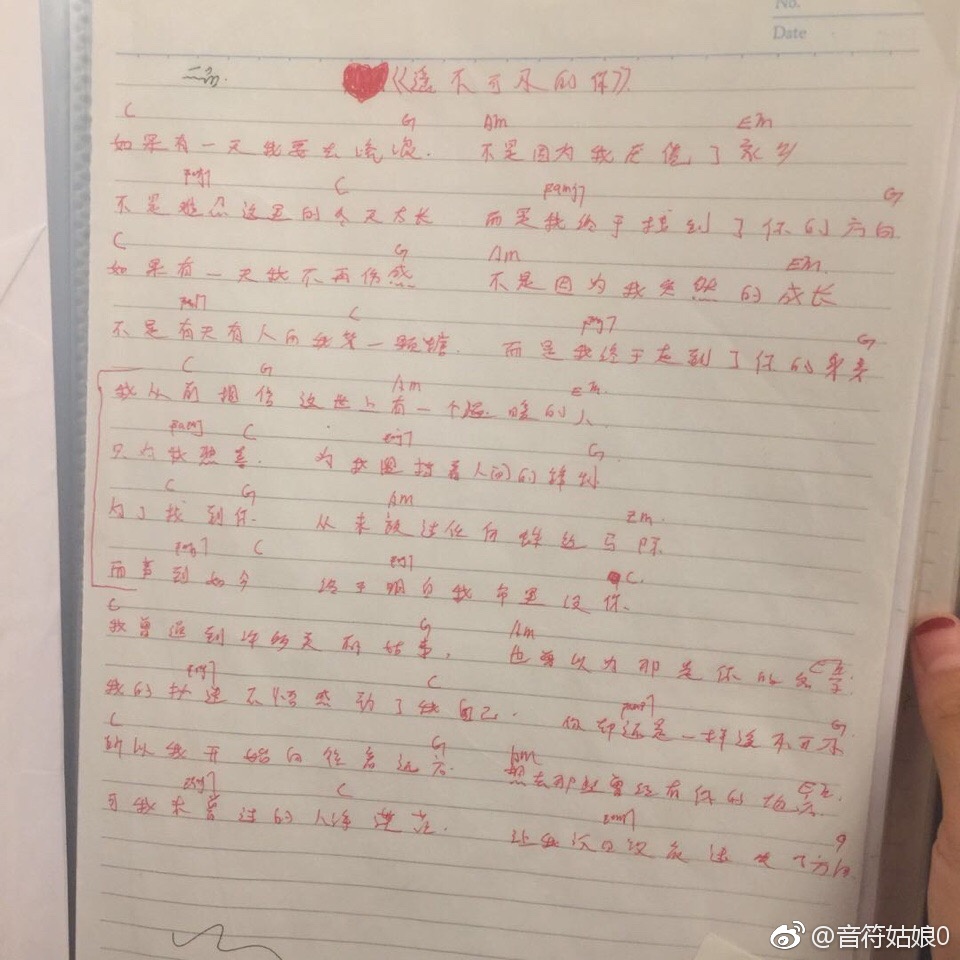 No.
Date
《遥不可及的你》
C G Am Em
如果有一天我要去流浪. 不是因为我厌倦了家乡
Fmaj7 C Fmaj7 G
不是难忍这里的冬天太长 而是我终于找到了你的方向
C G Am Em
如果有一天我不再伤感 不是因为我突然的成长
Fmaj7 C Fmaj7 G
不是有天有人向我 一颗糖. 而是我终于走到了你的身旁
C G Am Em
我从前相信这世上有一个温暖的人
Fmaj7 C Fmaj7 G
只为我 . 为我 着人间的锋利
C G Am Em
为了找到你. 从未放过任何蛛丝马际
Fmaj7 C Fmaj7 C.
而事到如今 终于明白我命里没你.
C G Am
我曾追到许多关的故事, 也曾以为那是你的名字.
Fmaj7 C Fmaj7 G
我的 不停感动了我自己. 你却还是一样遥不可及
C G Am
所以我开始向往着远方. 想去那些曾经有你的地方.
Fmaj7 C Fmaj7 G
可我未曾 过的人海 . 让我 没 了方向.
@音符姑娘0